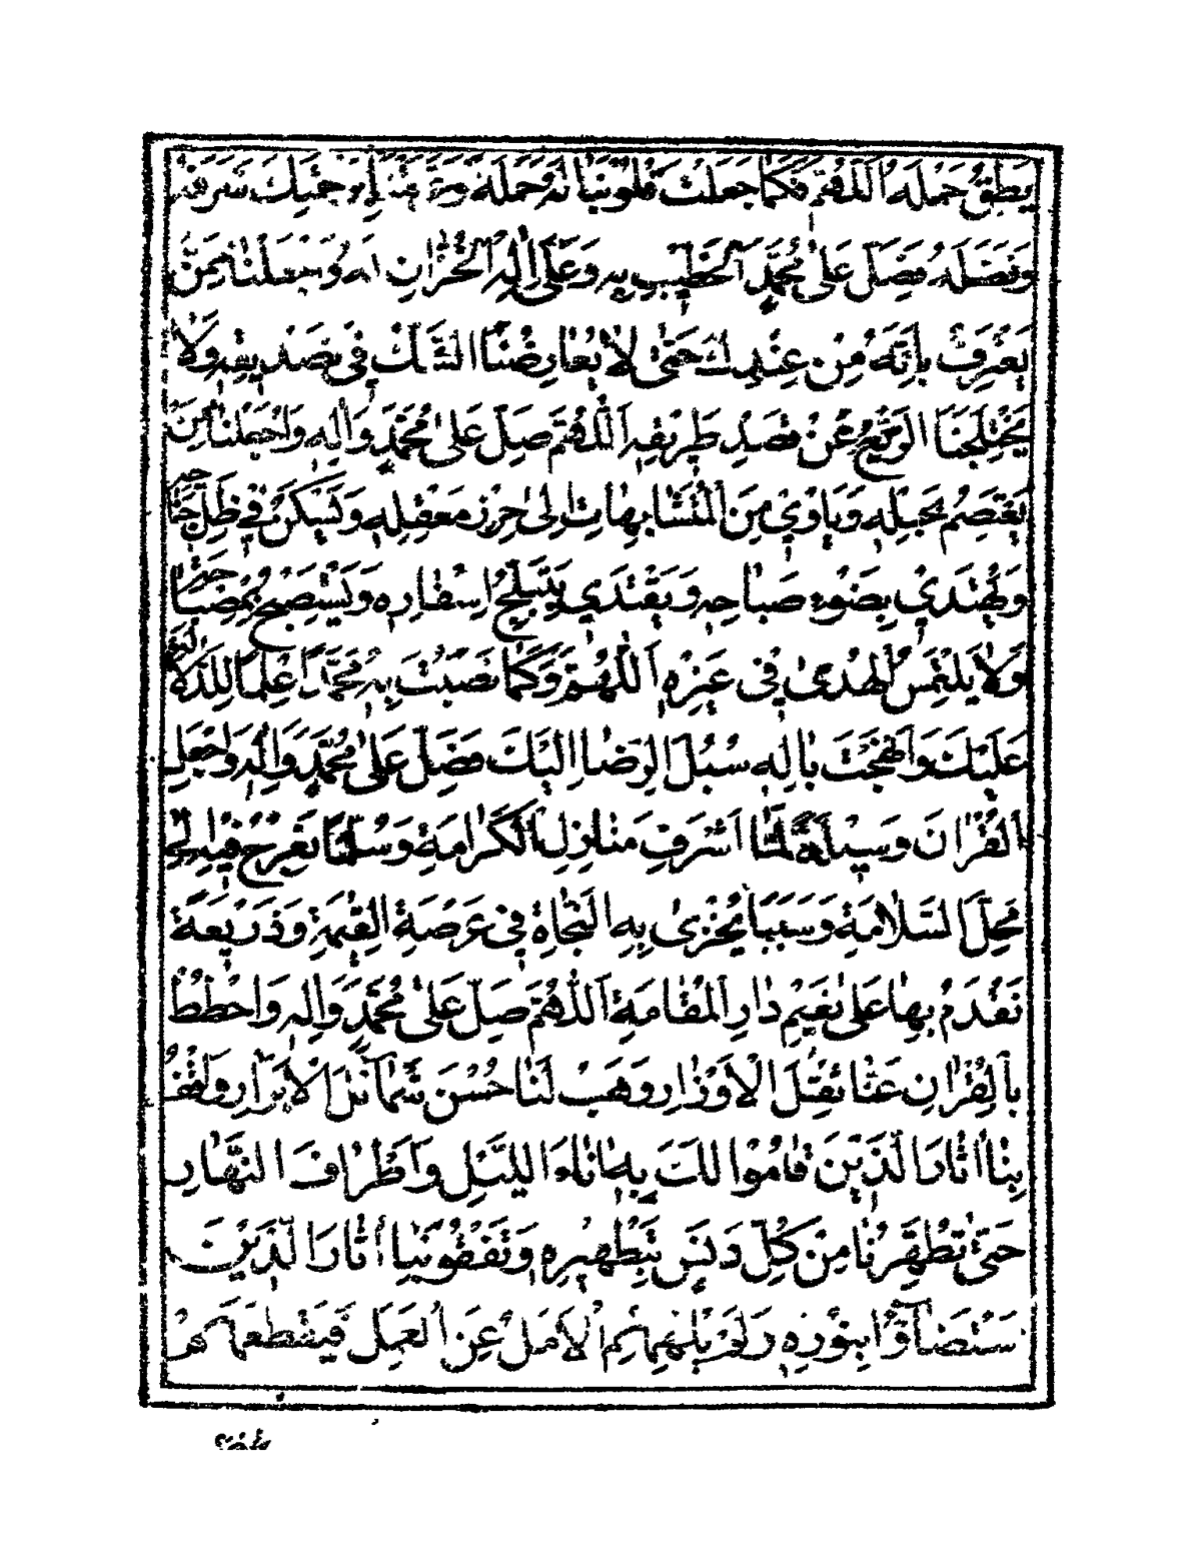 يُطِقْ حَمْلَهُ اَللّٰهُمَّ فَكَمَا جَعَلْتَ قُلُوبَنَا لَهُ حَمَلَةً وَعَرَّفْتَنَا بِرَحْمَتِكَ شَرَفَهُ
وَفَضْلَهُ فَصَلِّ عَلٰى مُحَمَّدٍ اَلْخَطِيبِ بِهِ وَعَلٰى اٰلِهِ الْخُزَّانِ لَهُ وَاجْعَلْنَا مِمَّنْ
يَعْتَرِفُ بِاَنَّهُ مِنْ عِنْدِكَ حَتّٰى لَا يُعَارِضَنَا الشَّكُّ فِي تَصْدِيقِهِ وَلَا
يَخْتَلِجَنَا الزَّيْغُ عَنْ قَصْدِ طَرِيقِهِ اَللّٰهُمَّ صَلِّ عَلٰى مُحَمَّدٍ وَاٰلِهِ وَاجْعَلْنَا مِمَّنْ
يَعْتَصِمُ بِحَبْلِهِ وَيَاْوِي مِنَ الْمُتَشَابِهَاتِ اِلٰى حِرْزِ مَعْقِلِهِ وَيَسْكُنُ فِي ظِلِّ جَنَاحِهِ
وَيَهْتَدِي بِضَوْءِ صَبَاحِهِ وَيَقْتَدِي بِتَبَلُّجِ اِسْفَارِهِ وَيَسْتَصْبِحُ بِمِصْبَاحِهِ
وَلَا يَلْتَمِسُ الْهُدٰى فِي غَيْرِهِ اَللّٰهُمَّ وَكَمَا نَصَبْتَ بِهِ مُحَمَّدًا عَلَمًا لِلدَّلَالَةِ
عَلَيْكَ وَاَنْهَجْتَ بِاٰلِهِ سُبُلَ الرِّضَا اِلَيْكَ فَصَلِّ عَلٰى مُحَمَّدٍ وَاٰلِهِ وَاجْعَلِ
الْقُرْاٰنَ وَسِيلَةً لَنَا اِلٰى اَشْرَفِ مَنَازِلِ الْكَرَامَةِ وَسُلَّمًا نَعْرُجُ فِيهِ اِلٰى
مَحَلِّ السَّلَامَةِ وَسَبَبًا نُجْزٰى بِهِ النَّجَاةَ فِي عَرْصَةِ الْقِيٰمَةِ وَذَرِيعَةً
نَقْدَمُ بِهَا عَلٰى نَعِيمِ دَارِ الْمُقَامَةِ اَللّٰهُمَّ صَلِّ عَلٰى مُحَمَّدٍ وَاٰلِهِ وَاحْطُطْ
بِالْقُرْاٰنِ عَنَّا ثِقْلَ الْاَوْزَارِ وَهَبْ لَنَا حُسْنَ شَمَائِلِ الْاَبْرَارِ وَاقْفُ
بِنَا اٰثَارَ الَّذِينَ قَامُوا لَكَ بِهِ اٰنَاءَ اللَّيْلِ وَاَطْرَافَ النَّهَارِ
حَتّٰى تُطَهِّرَنَا مِنْ كُلِّ دَنَسٍ بِتَطْهِيرِهِ وَتَقْفُوَ بِنَا اٰثَارَ الَّذِينَ
سْتَضَاۤؤُا بِنُورِهِ وَلَمْ يُلْهِهِمُ الْاَمَلُ عَنِ الْعَمَلِ فَيَقْطَعَهُمْ